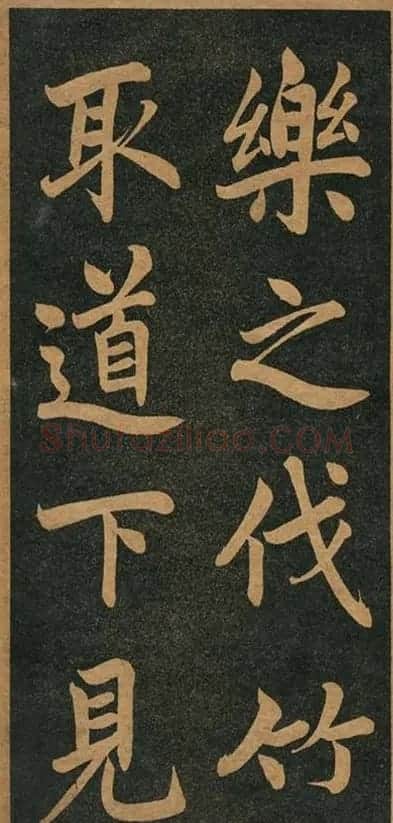 樂之伐竹
取道下見
Shufaziliao.COM